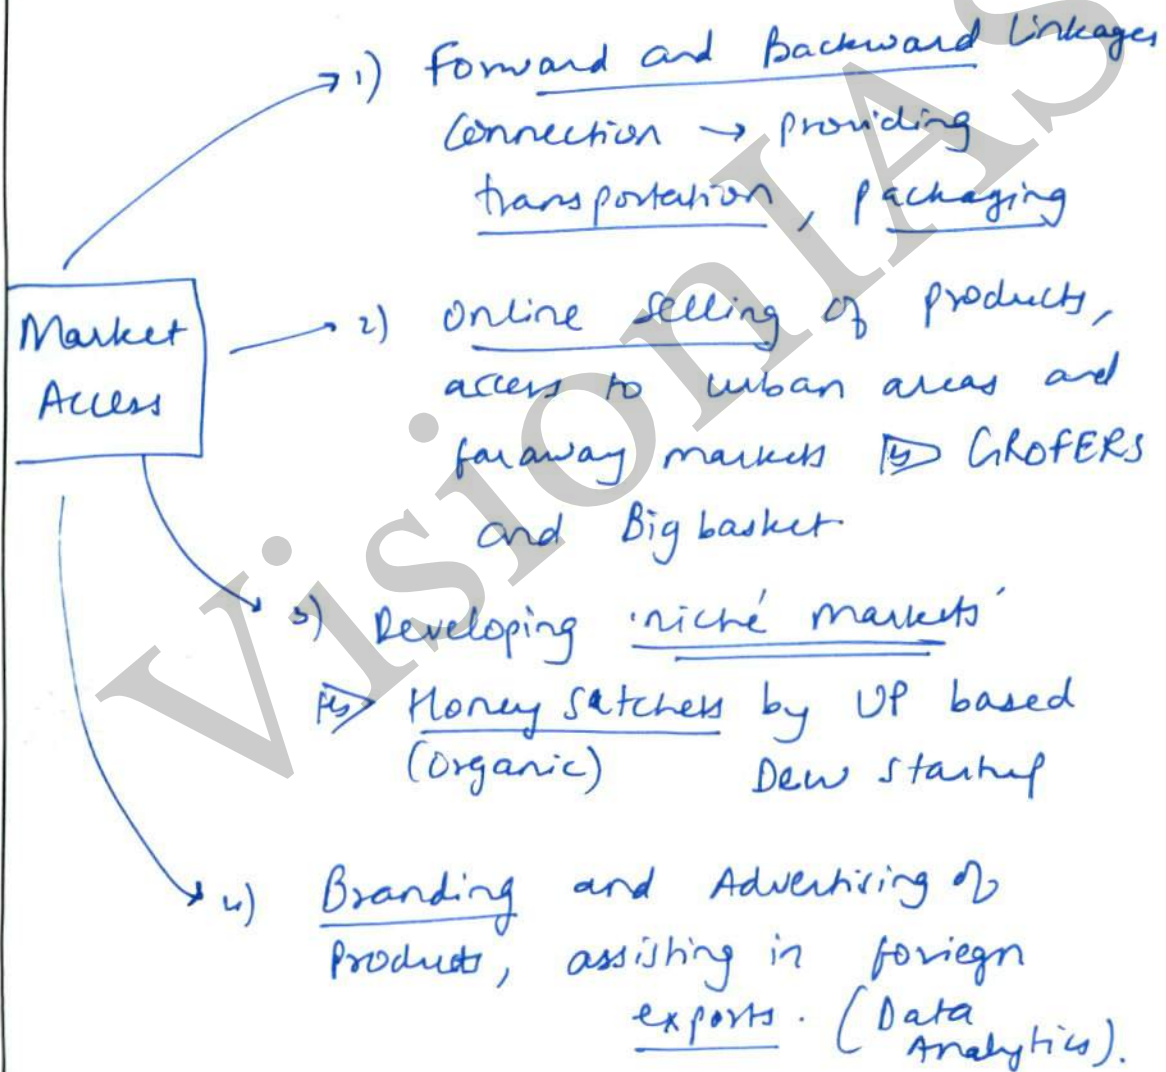 Market
Access
1) Forward and Backward Linkages
Connection → providing
transportation, packaging
2) Online selling of products,
access to urban areas and
faraway markets Eg GROFERS
and Big basket
3) Developing 'niché markets'
Eg Honey Satchets by UP based
(Organic) Dew startup
4) Branding and Advertising of
Products, assisting in foriegn
exports. (Data
Analytics).
VisionIAS